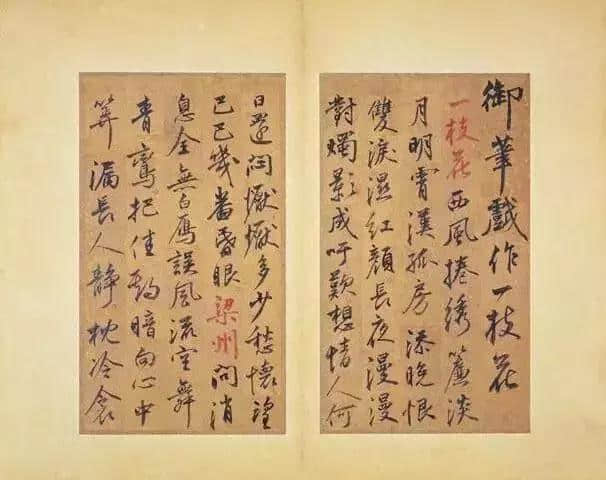 御筆戲作一枝花
一枝花西風捲綉簾淡
月明霄漢孤房添晚恨
雙淚濕紅顏長夜漫漫
對燭影成吁歎想情人何
日還悶懨懨多少愁懷望
巴巴幾番昏眼梁州問消
息全無白鴈誤風流空舞
青鸞把佳期暗向心中
筭漏長人靜枕冷衾